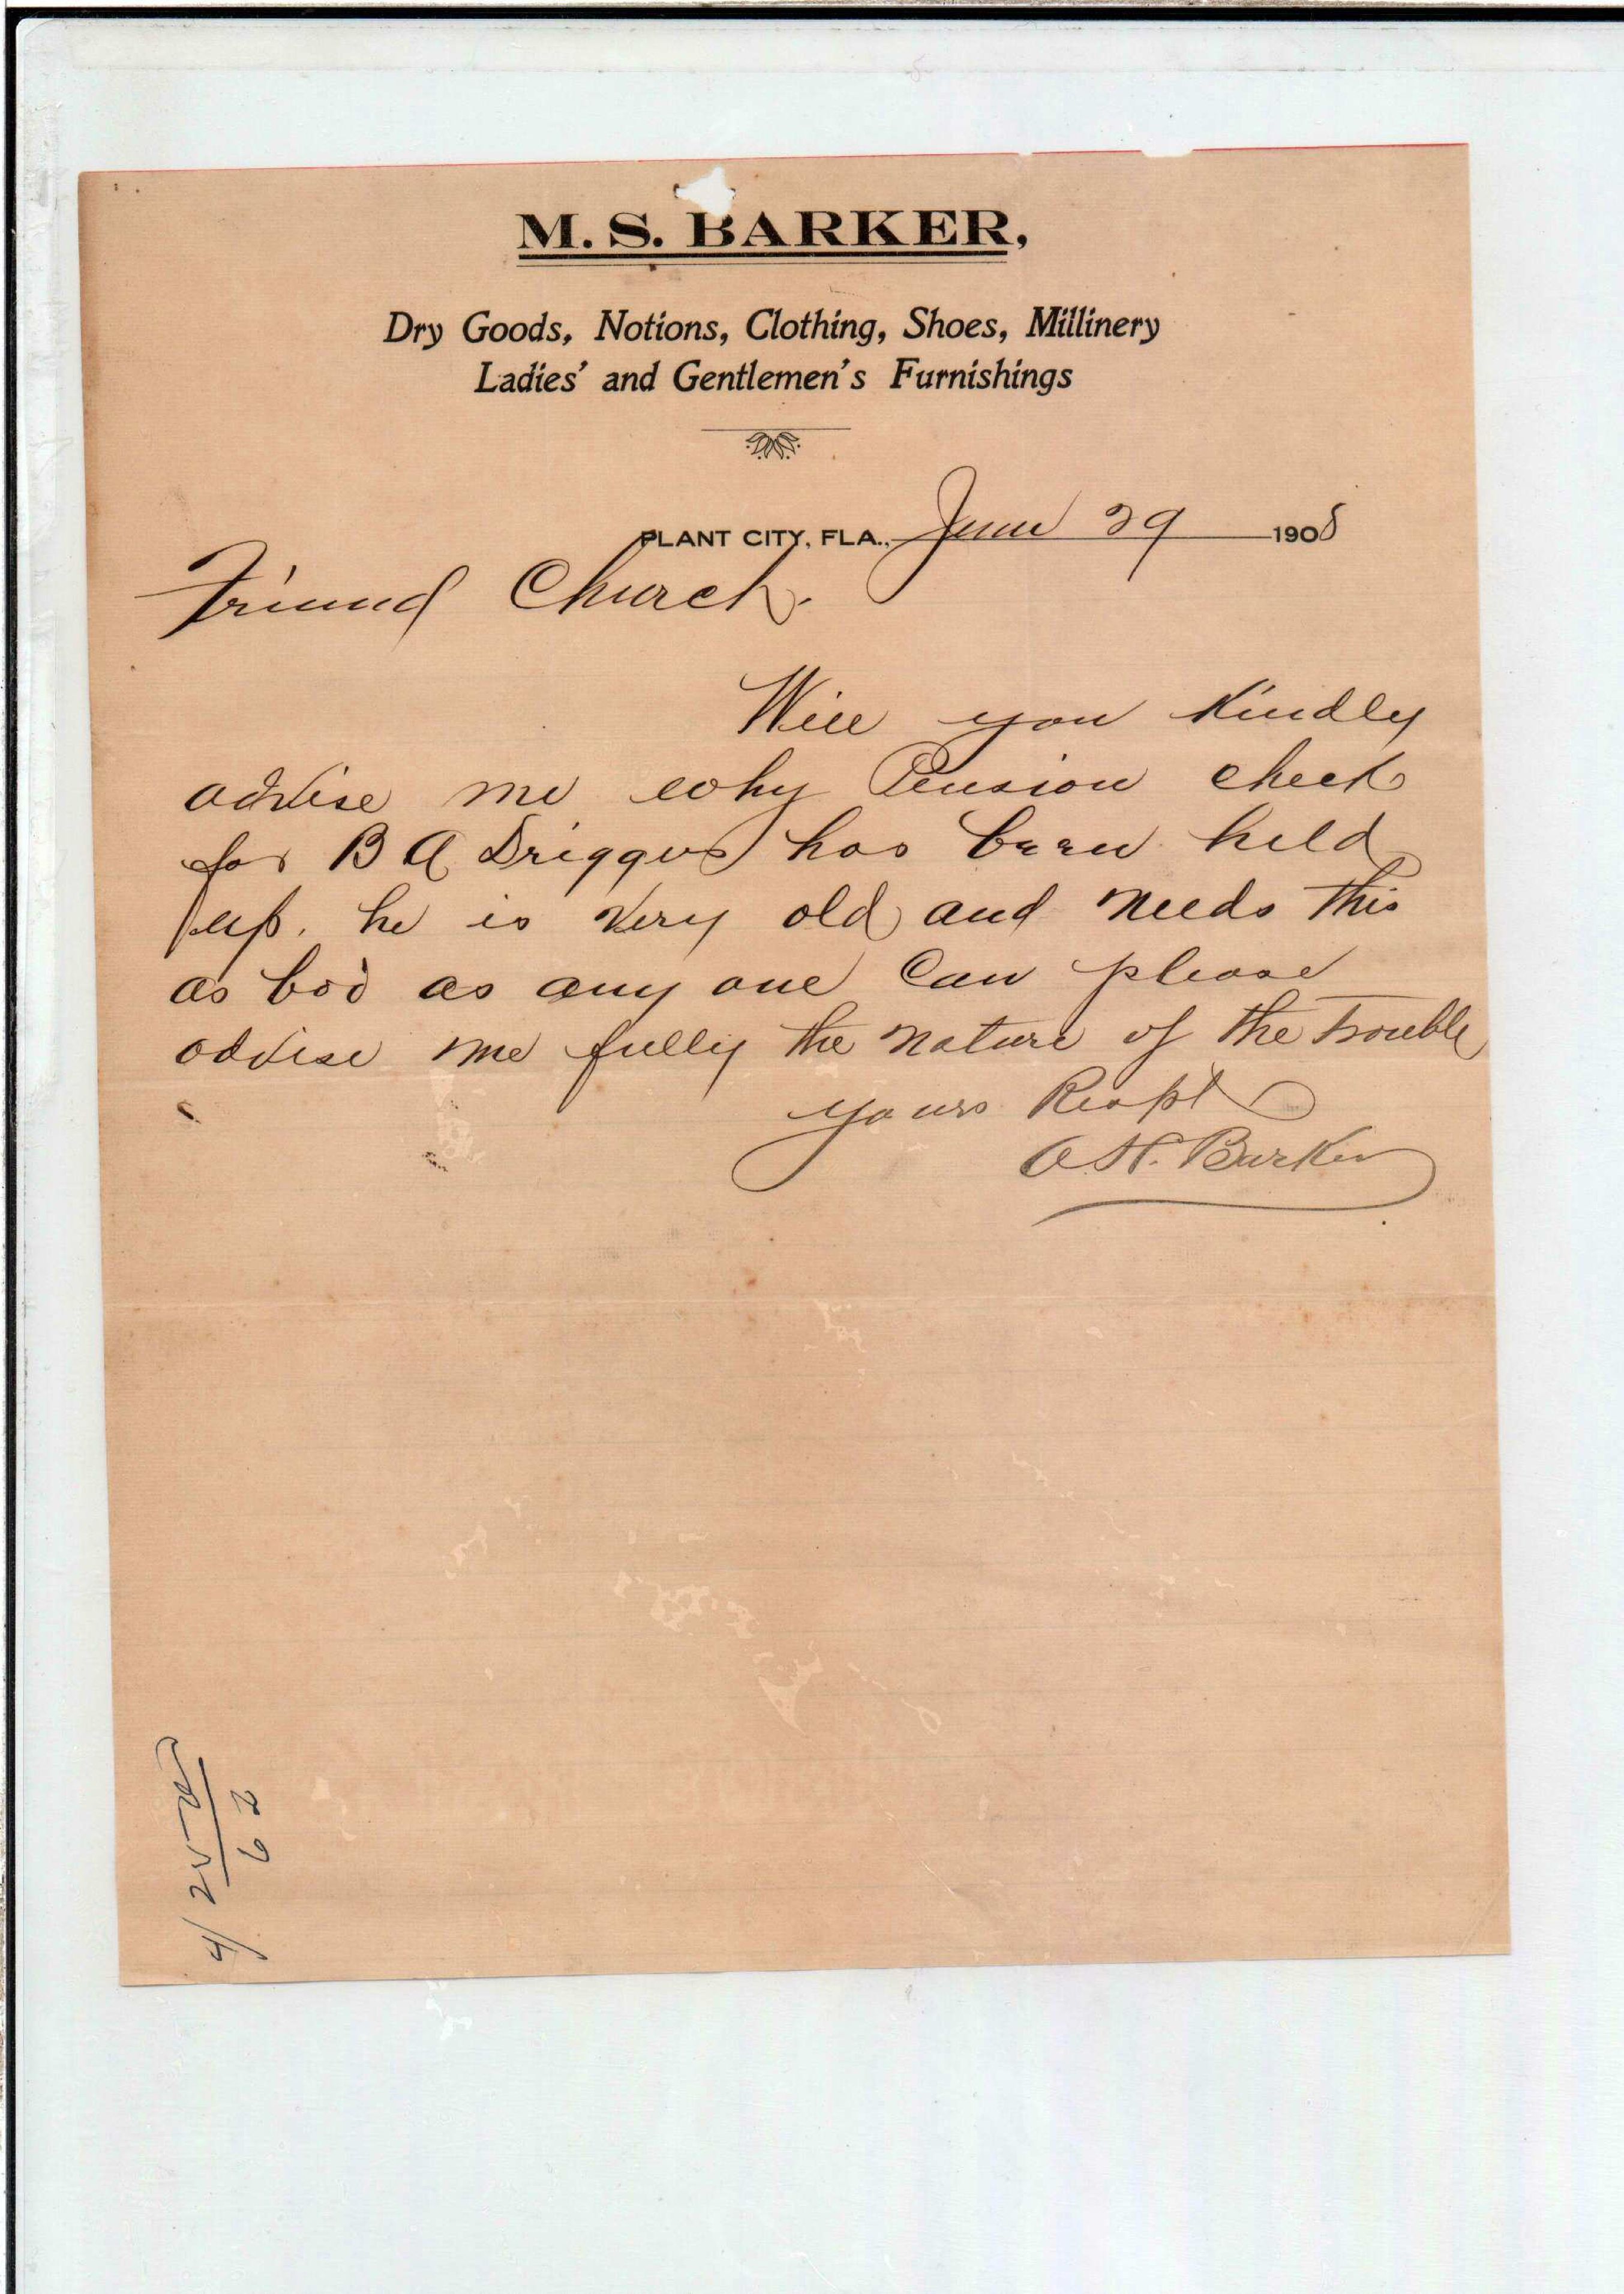 M. S. BARKER,
Dry Goods, Notions, Clothing, Shoes, Millinery
Ladies' and Gentlemen's Furnishings
PLANT CITY, FLA., June 29 1908
Friend Church.
Will you Kindly
advise me why Pension check
for B A Driggers has been held
up. he is very old and needs this
as bad as any one Can please
advise me fully the nature of the Trouble
yours Respt
Barker
62